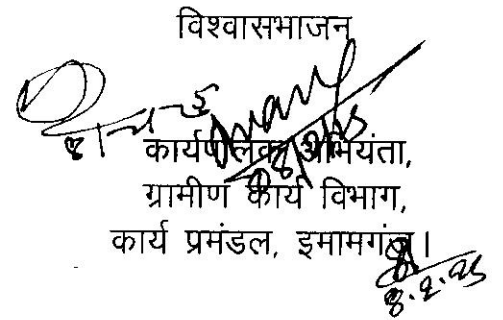 विश्वासभाजन
कार्यपालक अभियंता,
ग्रामीण कार्य विभाग,
कार्य प्रमंडल, इमामगंज।
8.2.25